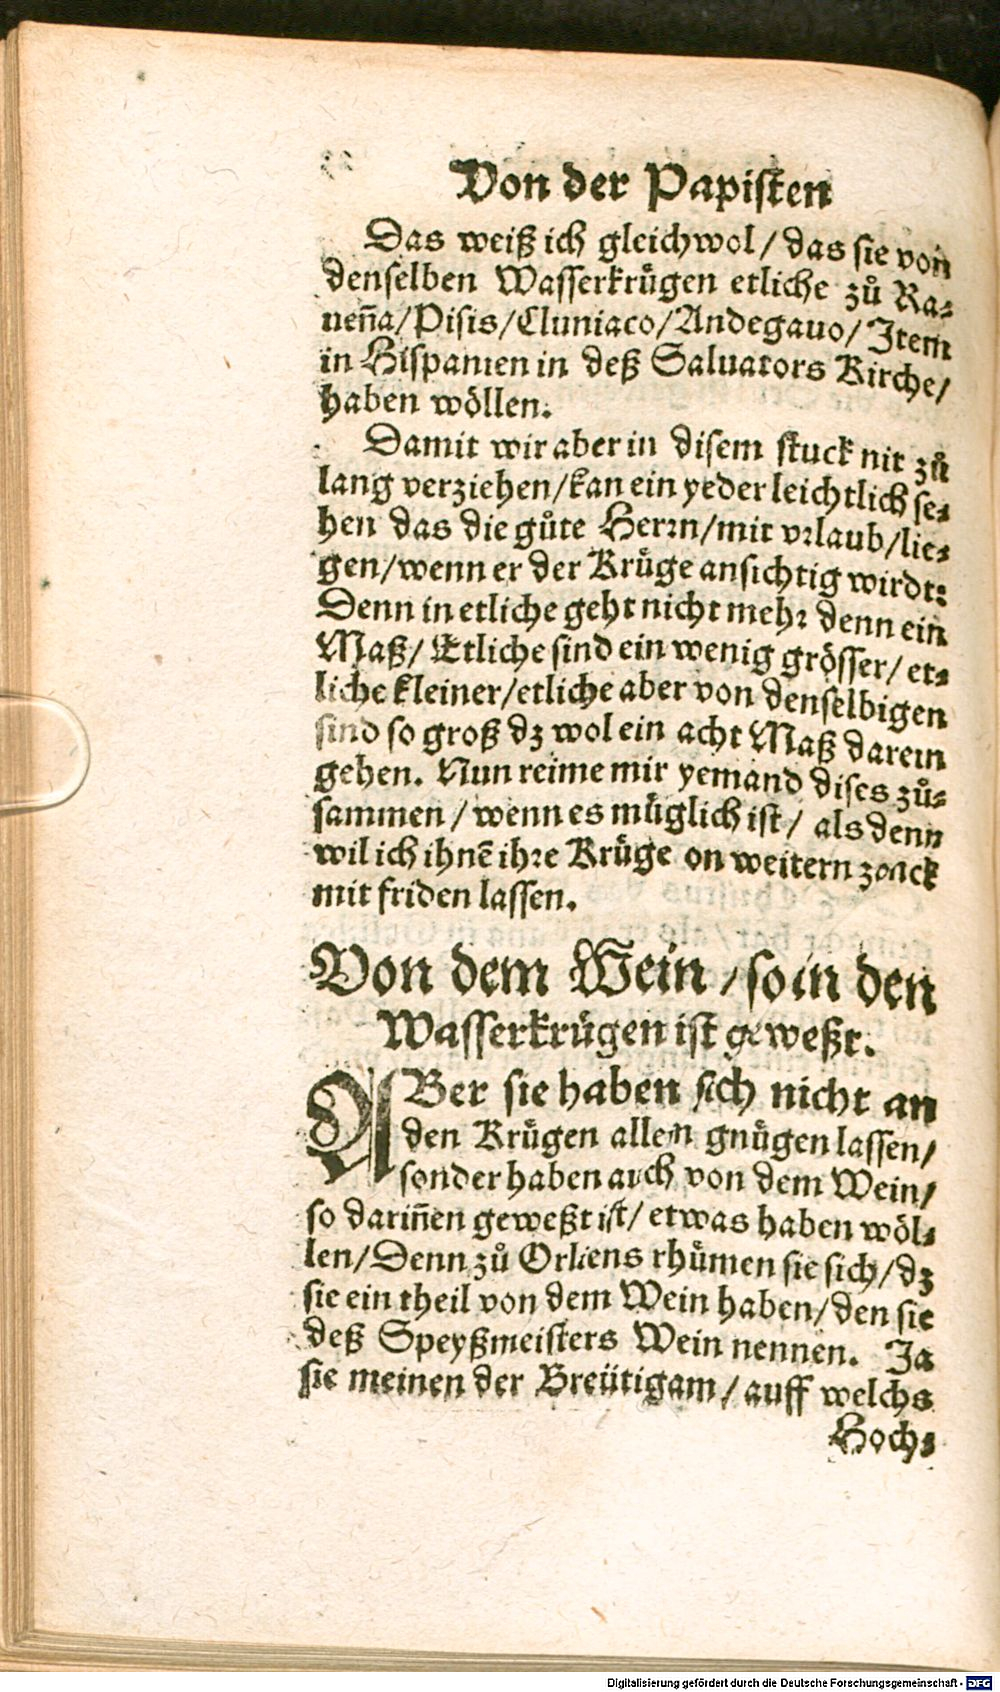 Von der Papisten
Das weiß ich gleichwol / das sie von
denselben Wasserkrügen etliche zů Ra⸗
ueña / Pisis / Cluniaco / Andegauo / Item
in Hispanien in deß Saluators Kirche /
haben wöllen.
Damit wir aber in disem stuck nit zů
lang verziehen / kan ein yeder leichtlich se⸗
hen das die gůte Herrn / mit vrlaub / lie⸗
gen / wenn er der Krüge ansichtig wirdt:
Denn in etliche geht nicht mehr denn ein
Maß / Etliche sind ein wenig grösser / et⸗
liche kleiner / etliche aber von denselbigen
sind so groß dz wol ein acht Maß darein
gehen. Nun reime mir yemand dises zů⸗
sammen / wenn es müglich ist / als denn
wil ich ihnē ihre Krüge on weitern zanck
mit friden lassen.
Von dem Wein / so in den
Wasserkrügen ist geweßt.
ABer sie haben sich nicht an
den Krügen allein gnügen lassen /
sonder haben auch von dem Wein /
so dariñen geweßt ist / etwas haben wöl⸗
len / Denn zů Orliens rhůmen sie sich / dz
sie ein theil von dem Wein haben / den sie
deß Speyßmeisters Wein nennen. Ja
sie meinen der Breütigam / auff welchs
Hoch⸗
Digitalisierung gefördert durch die Deutsche Forschungsgemeinschaft - DFG